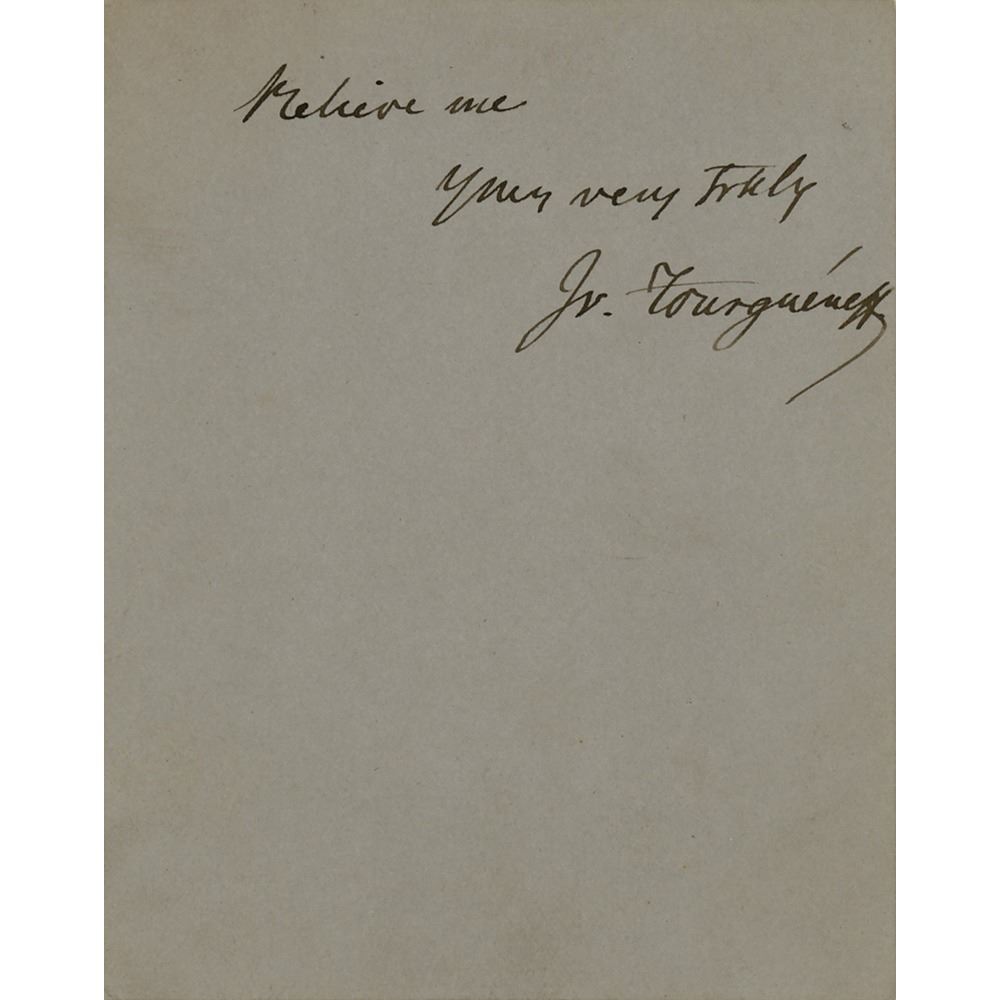 Believe me
yours very truly
Iv. Tourguéneff